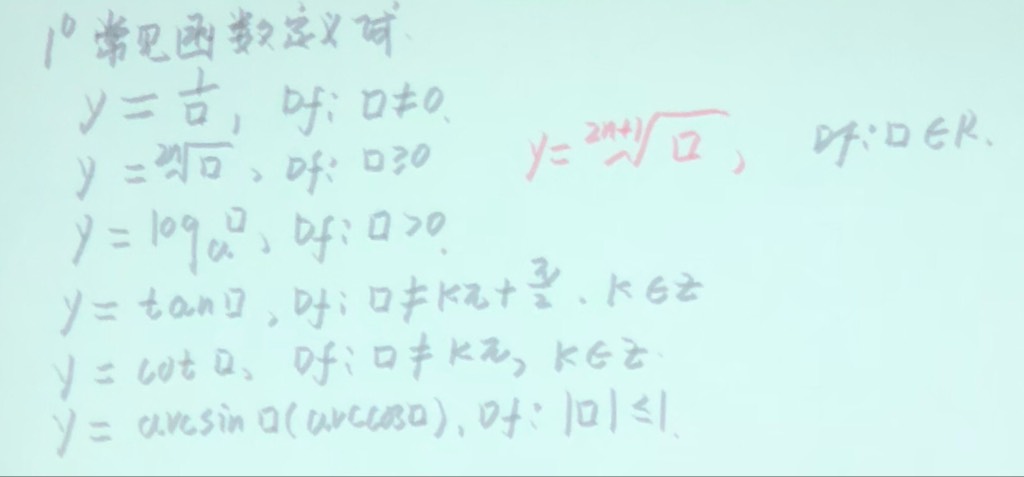 1° 常见函数定义域.
y = 1/□, Df: □≠0.
y = ²ⁿ√□, Df: □≥0 y = ²ⁿ⁺¹√□, Df: □∈R.
y = logₐ□, Df: □>0.
y = tan□, Df: □≠kπ+π/2. k∈z
y = cot□, Df: □≠kπ, k∈z.
y = arcsin□(arccos□), Df: |□|≤1.